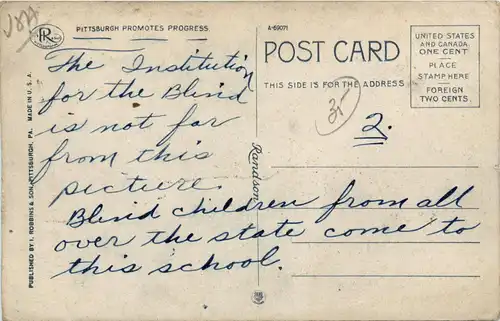 USA
R
PITTSBURGH PROMOTES PROGRESS
A-69071
POST CARD
THIS SIDE IS FOR THE ADDRESS
UNITED STATES
AND CANADA
ONE CENT
PLACE
STAMP HERE
FOREIGN
TWO CENTS
The Institution
for the Blind
is not far
from this
picture.
Blind children from all
over the state come to
this school.
35
2.
Randson
PUBLISHED BY I. ROBBINS & SON, PITTSBURGH, PA. MADE IN U.S.A.